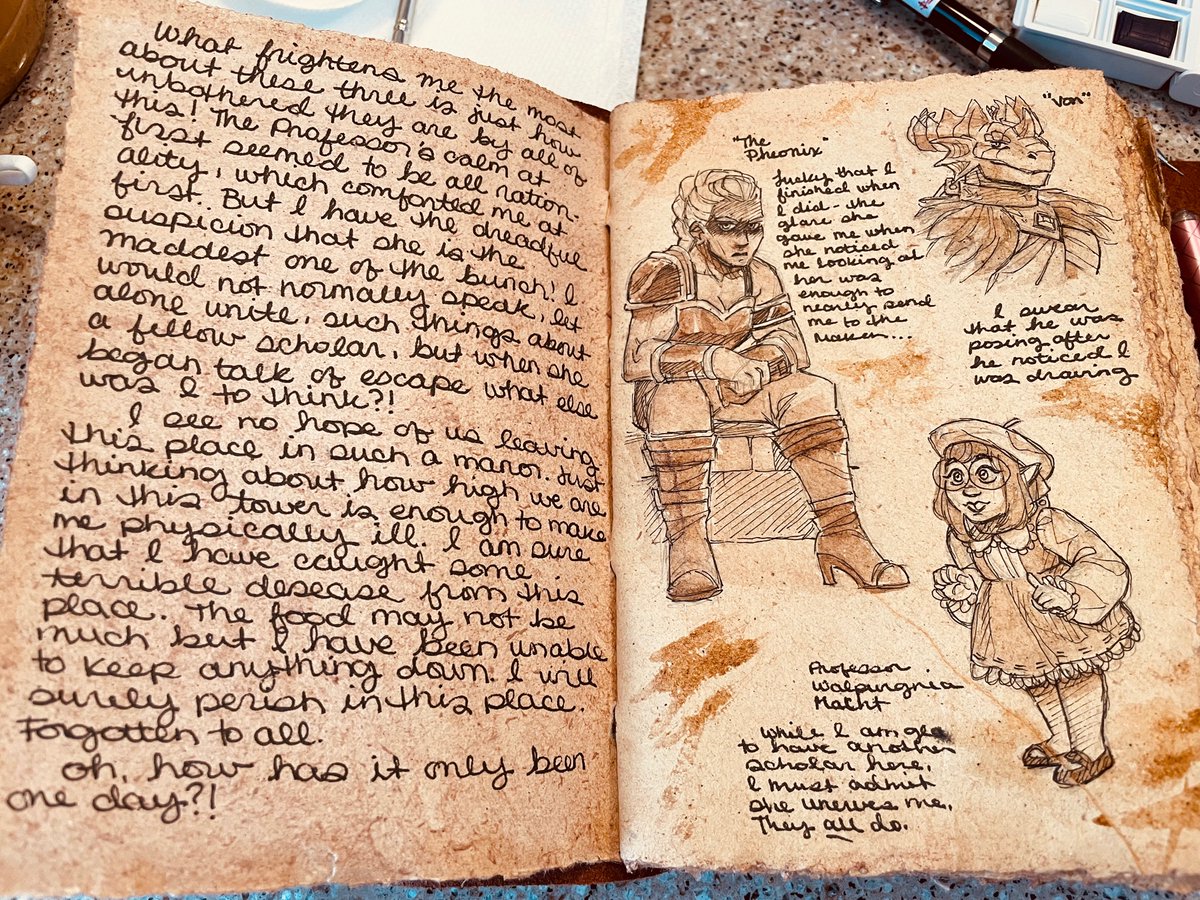 What frightens me the most
about these three is just how
unbothered they are by all of
this! The Professor's calm at
first seemed to be all nation-
ality, which comforted me at
first.. But I have the dreadful
suspicion that she is the
maddest one of the bunch! I
would not normally speak, let
alone write, such things about
a fellow scholar, but when she
began talk of escape what else
was I to think?!
I see no hope of us leaving
this place in such a manor. Just
thinking about how high we are
in this tower is enough to make
me physically ill. I am sure
that I have caught some
terrible desease from this
place. The food may not be
much but I have been unable
to keep anything down. I will
surely perish in this place.
Forgotten to all.
Oh, how has it only been
one day?!
"The
Pheonix"
Lucky that I
finished when
I did - the
glare she
gave me when
she noticed
me looking at
her was
enough to
nearly send
me to the
Maker...
"Von"
I swear
that he was
posing after
he noticed I
was drawing
Professor
Walpurgnia
Macht
While I am glad
to have another
scholar here,
I must admit
she unerves me.
They all do.